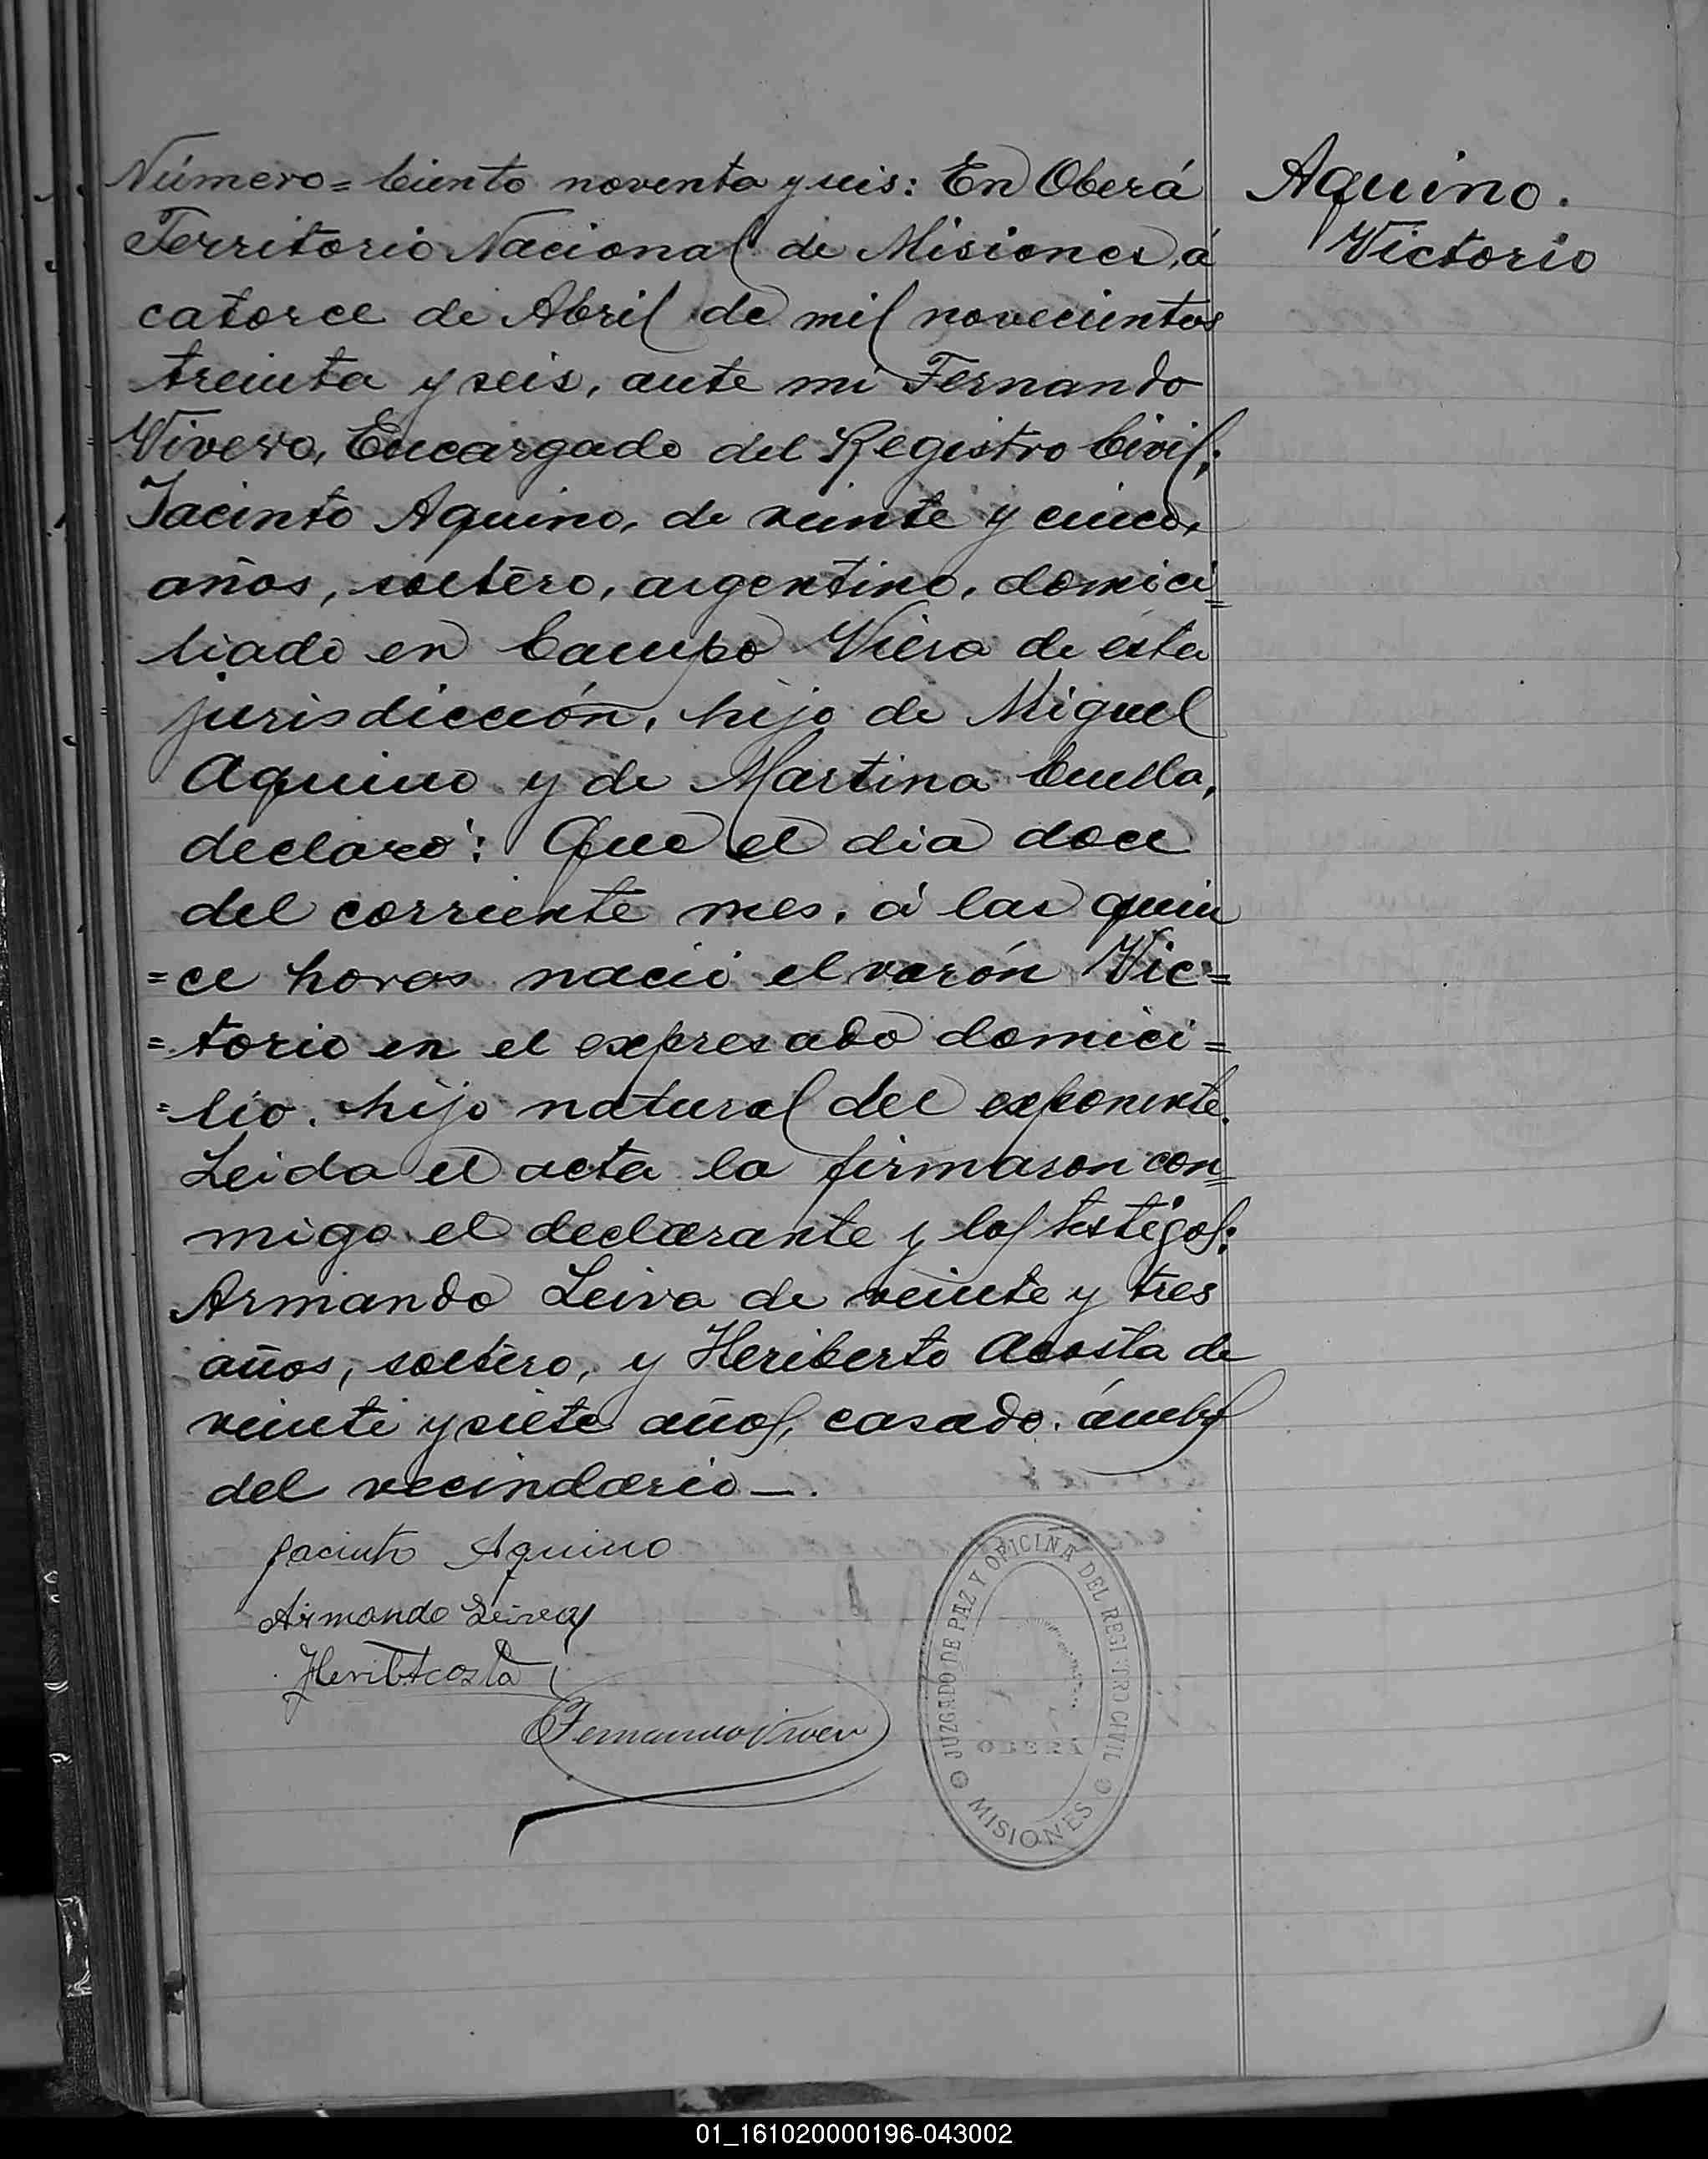 Número = Ciento noventa y seis: En Oberá
Territorio Nacional de Misiones, á
catorce de Abril de mil novecientos
treinta y seis, ante mi Fernando
Vivero, Encargado del Registro Civil;
Jacinto Aquino, de veinte y cinco,
años, soltero, argentino, domici=
liado en Campo Viera de ésta
jurisdicción, hijo de Miguel
Aquino y de Martina
declaró: Que el dia doce
del corriente mes, á las quin
=ce horas nació el varón Vic=
=torio en el expresado domici=
=lio. hijo natural del exponente.
Leida el acta la firmaron con=
migo el declarante y los testigos:
Armando Leiva de veinte y tres
años, soltero, y Heriberto Acosta de
veinte y siete años, casado. ámbos
del vecindario—.
Aquino.
Victorio
Jacinto Aquino
Armando Leiva
HeribAcosta
Fernando Viver
JUZGADO DE PAZ Y OFICINA DEL REGISTRO CIVIL
OBERÁ
MISIONES
01_161020000196-043002